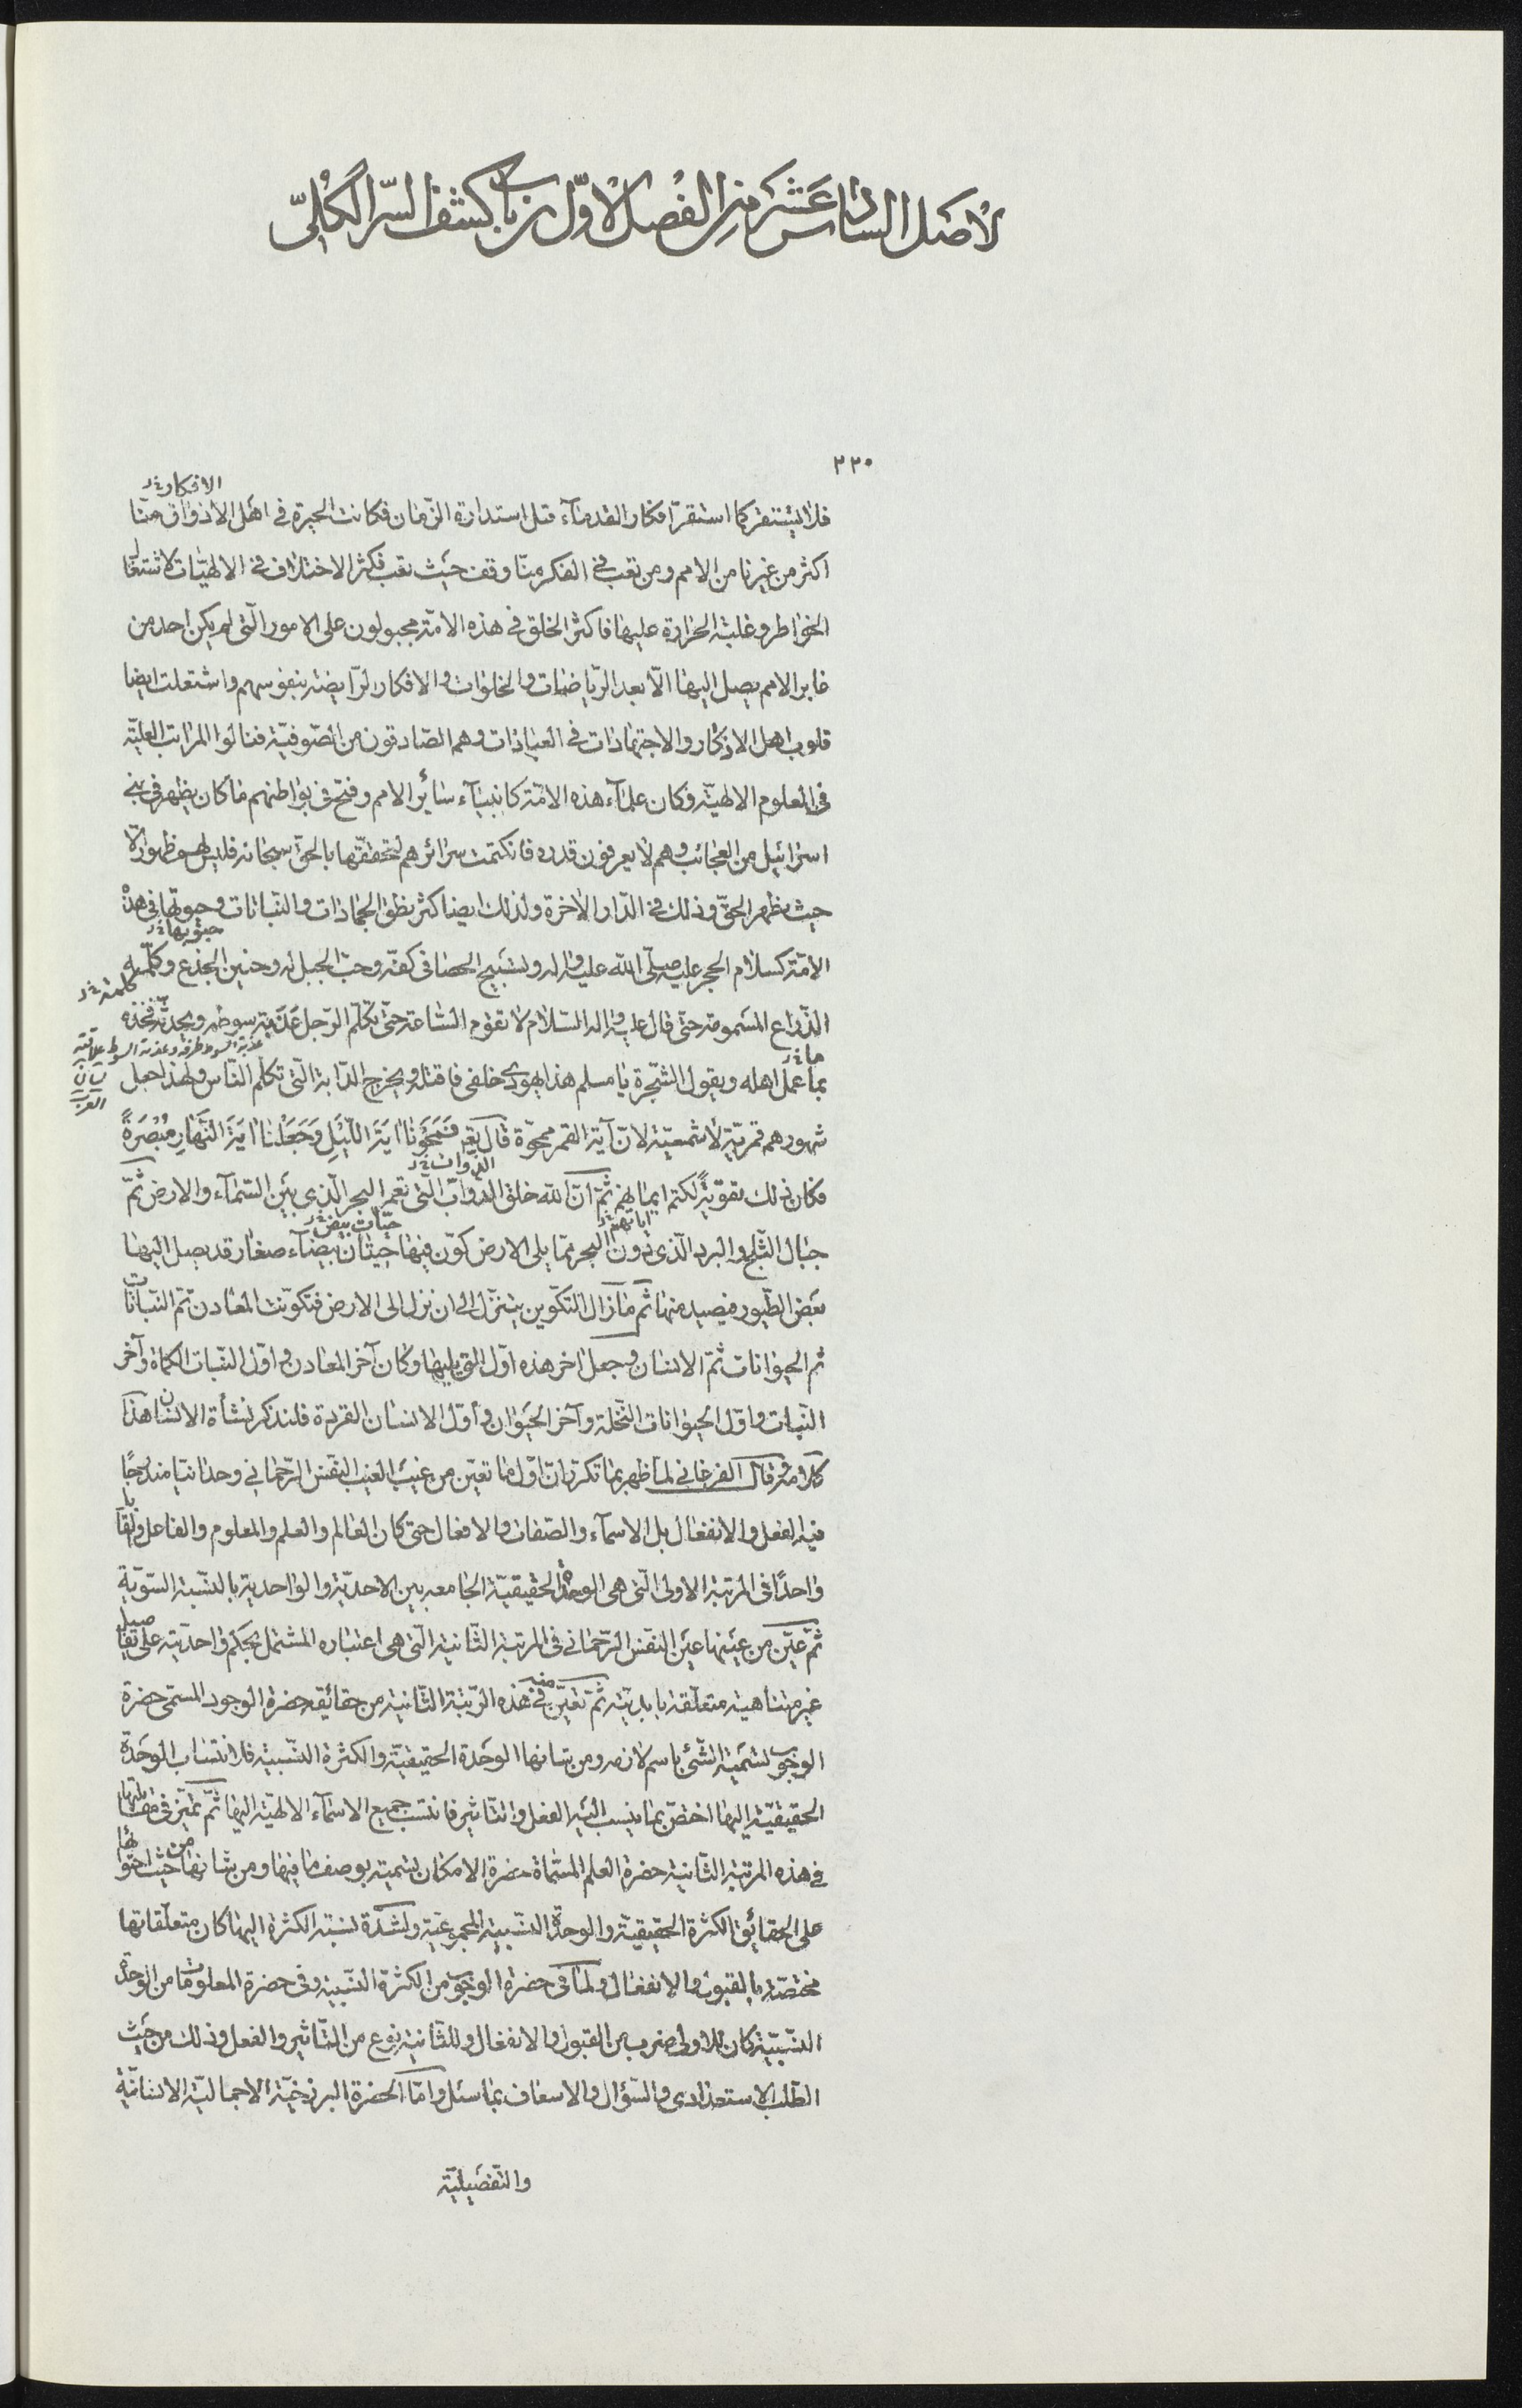 الاصل السادس عشر من الفصل الاوّل من باب كشف السرّ الكلّى
٢٢٠
الافكار خ‌ر
فلا يستقر كما استقر افكار القدمآء قبل استدارة الزّمان فكانت الحيرة فى اهل الاذواق منّا
اكثر من غيرنا من الامم ومن تعب فى الفكر منّا وقف حيث تعب فكثر الاختلاف فى الالهيّات لاشتعال
الخواطر وغلبة الحرارة عليها فاكثر الخلق فى هذه الامّة مجبولون على الامور الّتى لم يكن احد من
غابر الامم يصل اليها الّا بعد الرّياضات والخلوات والافكار الرّايضة بنفوسهم واشتعلت ايضا
قلوب اهل الاذكار والاجتهادات فى العبادات وهم الصّادقون من الصّوفيّة فنالوا المراتب العليّة
فى العلوم الالهيّة وكان علمآء هذه الامّة كانبيآء سائر الامم وفتح فى بواطنهم ما كان يظهر فى بنى
اسرائيل من العجائب وهم لا يعرفون قدره فانكتمت سرائرهم لتحقّقها بالحق سبحانه فليس لهم ظهور الّا
حيث يظهر الحقّ وذلك فى الدّار الاخرة ولذلك ايضا كثر نطق الجمادات والنّباتات وحيوتها فى هذه
حيوتها خ‌ر
الامّة كسلام الحجر عليه صلّى اللّه عليه واله وتسبيح الحصا فى كفّه وحبّ الجبل له وحنين الجذع وكلّمه
كلمته خ‌ر
الذّراع المسمومة حتّى قال عليه واله السّلام لا تقوم السّاعة حتّى تكلّم الرّجل عذبة سوطه ويحدّثه فخذه
عذبة السوط طرفه وعذبة السوط علاقته لسان العرب
ما خ‌ر
بما عمل اهله ويقول الشّجرة يا مسلم هذا يهودى خلفى فاقتله ويخرج الدّابة الّتى تكلّم النّاس ولهذا جعل
شهورهم قمريّة لا شمسيّة لانّ آية القمر ممحوّة قال تع فَمَحَوْنا ايَةَ اللَّيْلِ وَجَعَلْنا ايَةَ النَّهارِ مُبْصِرَةً
الدوات خ‌ر
فكان ذلك تقويةً لكتم ايمانهم ثمّ انّ اللّه خلق الدوابّ الّتى تعمر البحر الّذى بين السّمآء والارض ثمّ
اياتهم خ‌ر
حيّات بيض خ‌ر
جبال الثّلج والبرد الّذى دون البحر ممّا يلى الارض كوّن فيها حيتان بيضآء صغار قد يصل اليها
بعض الطّيور فيصيد منها ثمّ ما زال التكوين يتنزّل الى ان نزل الى الارض فتكوّنت المعادن ثمّ النّباتات
ثم الحيوانات ثمّ الانسان وجعل اخر هذه اوّل الّتى يليها وكان آخر المعادن واوّل النّبات الكماة وآخر
النّبات واوّل الحيوانات النّخلة وآخر الحيوان واوّل الانسان القردة فلنذكر نشأة الانسان هذا
كلامه وقال الفرغانى لمّا ظهر بما تكرّر انّ اوّل ما تعيّن من غيب الغيب النفس الرّحمانى وحدانيا مندرجًا
فيه الفعل والانفعال بل الاسمآء والصّفات والافعال حتى كان العالم والعلم والمعلوم والفاعل والقابل
واحدًا فى المرتبة الاولى الّتى هى الوحدة الحقيقيّة الجامعه بين الاحديّة والواحدية بالنّسبة السّويّة
ثمّ عيّن من عينها عين النفس الرّحمانى فى المرتبة الثّانية الّتى هى اعتباره المشتمل بحكم واحديّته على تفاصيل
غير متناهية متعلّقة بابديّته ثمّ تعيّن منه فى هذه الرّتبة الثّانية من حقائقه حضرة الوجود المسمّى حضرة
الوجوب تسمية الشّئ باسم لازمه ومن شانها الوحدة الحقيقيّة والكثرة النّسبية فلانتساب الوحدة
الحقيقيّة اليها اختصّ بما ينسب اليه الفعل والتّاثير فانتسب جميع الاسمآء الالهيّة اليها ثمّ تميّز فى مقابلتها
فى هذه المرتبة الثّانية حضرة العلم المسمّاة حضرة الامكان تسميته بوصف ما فيها ومن شانها من حيث احتوائها
على الحقائق الكثرة الحقيقيّة والوحدة النّسبية المجموعيّة ولشدّة نسبة الكثرة اليها كان متعلّقاتها
مختصّة بالقبول والانفعال ولما فى حضرة الوجوب من الكثرة النّسبية وفى حضرة المعلومات من الوحدة
النّسبيّة كان للاولى ضرب من القبول والانفعال وللثّانية نوع من التّاثير والفعل وذلك من حيث
الطّلب الاستعدادى والسّؤال والاسعاف بما سئل وامّا الحضرة البرزخيّة الاجماليّة الانسانيّة
والتّفصيليّة